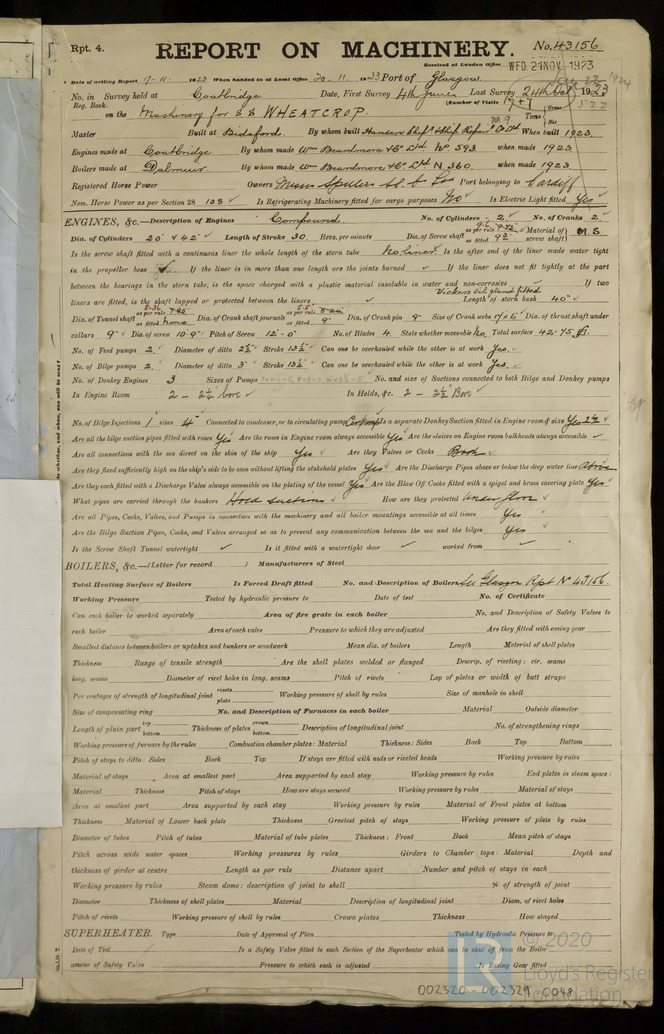 Rpt. 4. REPORT ON MACHINERY. No. 43156
Received at London Office WED. 21 NOV. 1923
Date of writing Report 7-11- 1923 When handed in at Local Office 20.11. 1923 Port of Glasgow
No. in Survey held at Coatbridge Date, First Survey 4th June Last Survey 24th Oct 1923
Reg. Book. (Number of Visits 17+7)
on the Machinery for S S WHEATCROP. Tons Gross 522 Net
Master Built at Bideford By whom built Hansen Ship & Ship Repair Co Ltd When built 1923.
Engines made at Coatbridge By whom made Wm Beardmore & Co Ltd No 593 when made 1923
Boilers made at Dalmuir By whom made Wm Beardmore & Co Ltd N 360 when made 1923
Registered Horse Power Owners Port belonging to Cardiff
Nom. Horse Power as per Section 28 108 Is Refrigerating Machinery fitted for cargo purposes No Is Electric Light fitted Yes
ENGINES, &c.—Description of Engines Compound No. of Cylinders 2 No. of Cranks 2
Dia. of Cylinders 20 & 42 Length of Stroke 30 Revs. per minute Dia. of Screw shaft as per rule as fitted 9½ Material of screw shaft M.S
Is the screw shaft fitted with a continuous liner the whole length of the stern tube No liner Is the after end of the liner made water tight
in the propeller boss If the liner is in more than one length are the joints burned If the liner does not fit tightly at the part
between the bearings in the stern tube, is the space charged with a plastic material insoluble in water and non-corrosive If two
liners are fitted, is the shaft lapped or protected between the liners Vickers oil gland fitted Length of stern bush 40"
Dia. of Tunnel shaft as per rule as fitted none Dia. of Crank shaft journals as per rule as fitted 9" Dia. of Crank pin 9" Size of Crank webs 17×6 Dia. of thrust shaft under
collars 9" Dia. of screw 10-9 Pitch of Screw 12'-0" No. of Blades 4 State whether moveable No Total surface 42.75
No. of Feed pumps 2 Diameter of ditto 2½ Stroke 13½ Can one be overhauled while the other is at work Yes
No. of Bilge pumps 2 Diameter of ditto 3 Stroke 13½ Can one be overhauled while the other is at work Yes
No. of Donkey Engines 3 Sizes of Pumps No. and size of Suctions connected to both Bilge and Donkey pumps
In Engine Room 2 - 2½ bore In Holds, &c. 2 - 2½ Bore
No. of Bilge Injections 1 sizes 4" Connected to condenser, or to circulating pump Is a separate Donkey Suction fitted in Engine room & size Yes 2½
Are all the bilge suction pipes fitted with roses Yes Are the roses in Engine room always accessible Yes Are the sluices on Engine room bulkheads always accessible
Are all connections with the sea direct on the skin of the ship Yes Are they Valves or Cocks Both
Are they fixed sufficiently high on the ship's side to be seen without lifting the stokehold plates Yes Are the Discharge Pipes above or below the deep water line Above
Are they each fitted with a Discharge Valve always accessible on the plating of the vessel Yes Are the Blow Off Cocks fitted with a spigot and brass covering plate Yes
What pipes are carried through the bunkers Hold suctions How are they protected Under floor
Are all Pipes, Cocks, Valves, and Pumps in connection with the machinery and all boiler mountings accessible at all times Yes
Are the Bilge Suction Pipes, Cocks, and Valves arranged so as to prevent any communication between the sea and the bilges Yes
Is the Screw Shaft Tunnel watertight Is it fitted with a watertight door worked from
BOILERS, &c.—(Letter for record ) Manufacturers of Steel
Total Heating Surface of Boilers Is Forced Draft fitted No. and Description of Boilers See Glasgow Rpt No 43156.
Working Pressure Tested by hydraulic pressure to Date of test No. of Certificate
Can each boiler be worked separately Area of fire grate in each boiler No. and Description of Safety Valves to
each boiler Area of each valve Pressure to which they are adjusted Are they fitted with easing gear
Smallest distance between boilers or uptakes and bunkers or woodwork Mean dia. of boilers Length Material of shell plates
Thickness Range of tensile strength Are the shell plates welded or flanged Descrip. of riveting: cir. seams
long. seams Diameter of rivet holes in long. seams Pitch of rivets Lap of plates or width of butt straps
Per centages of strength of longitudinal joint rivets plate Working pressure of shell by rules Size of manhole in shell
Size of compensating ring No. and Description of Furnaces in each boiler Material Outside diameter
Length of plain part top bottom Thickness of plates crown bottom Description of longitudinal joint No. of strengthening rings
Working pressure of furnace by the rules Combustion chamber plates: Material Thickness: Sides Back Top Bottom
Pitch of stays to ditto: Sides Back Top If stays are fitted with nuts or riveted heads Working pressure by rules
Material of stays Area at smallest part Area supported by each stay Working pressure by rules End plates in steam space:
Material Thickness Pitch of stays How are stays secured Working pressure by rules Material of stays
Area at smallest part Area supported by each stay Working pressure by rules Material of Front plates at bottom
Thickness Material of Lower back plate Thickness Greatest pitch of stays Working pressure of plate by rules
Diameter of tubes Pitch of tubes Material of tube plates Thickness: Front Back Mean pitch of stays
Pitch across wide water spaces Working pressures by rules Girders to Chamber tops: Material Depth and
thickness of girder at centre Length as per rule Distance apart Number and pitch of stays in each
Working pressure by rules Steam dome: description of joint to shell % of strength of joint
Diameter Thickness of shell plates Material Description of longitudinal joint Diam. of rivet holes
Pitch of rivets Working pressure of shell by rules Crown plates Thickness How stayed
SUPERHEATER. Type Date of Approval of Plan Tested by Hydraulic Pressure to
Date of Test Is a Safety Valve fitted to each Section of the Superheater which can be shut off from the Boiler
Diameter of Safety Valve Pressure to which each is adjusted Is Easing Gear fitted
© 2020
Lloyd's Register
Foundation
002320-002329-0048